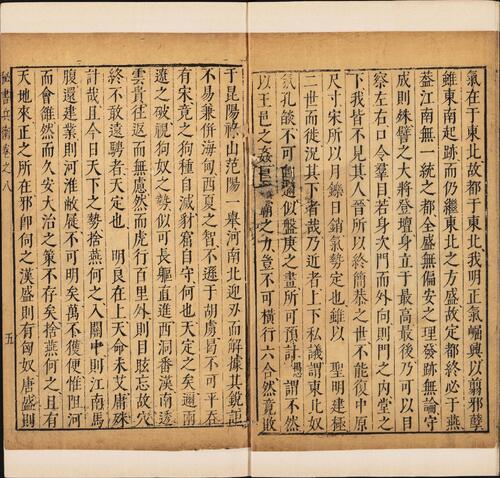 氣在于東北故都于東北我明正氣崛興以翦邪孽
雖東南起跡而仍繼東北之方盛故定都終必于燕
蓋江南無一統之都全盛無偏安之理發跡無論守
成則殊譬之大將登壇身立于最高最後乃可以目
察左右口令羣目若身次門而外向則門之内堂之
下我皆不見其人晉所以終簡恭之世不能復中原
尺寸宋所以月鑠日銷氣勢定也雖以 聖明建極
二世而徙況其下者哉乃近者上下私議謂東北奴
氛孔燄不可 似盤庚之畫所可預計 謂不然
以王邑之姦 霸之力豈不可橫行六合然竟敗
于昆陽祿山范陽一舉河南北迎刃而解據其銳詎
不易兼併海甸西夏之智不遜于胡虜曷不可平吞
有宋竟之狗種自滅豺窟自守何也天定之矣邇南
遼之破視狗奴之勢似可長軀直進西洞番漢南透
雲貴往返而無慮然而虎行百里外則目眩忘故穴
終不敢遠騁者天定也 明良在上天命未艾庸殊
計哉且今日天下之勢捨燕何之入關中則江南馬
腹還建業則河淮敝屣不可明矣萬不獲便惟阻河
而會雒然而久安大治之策不存矣捨燕何之且有
天地來正之所在邪卽伺之漢盛則有匈奴唐盛則
秘書兵衡卷之八
五